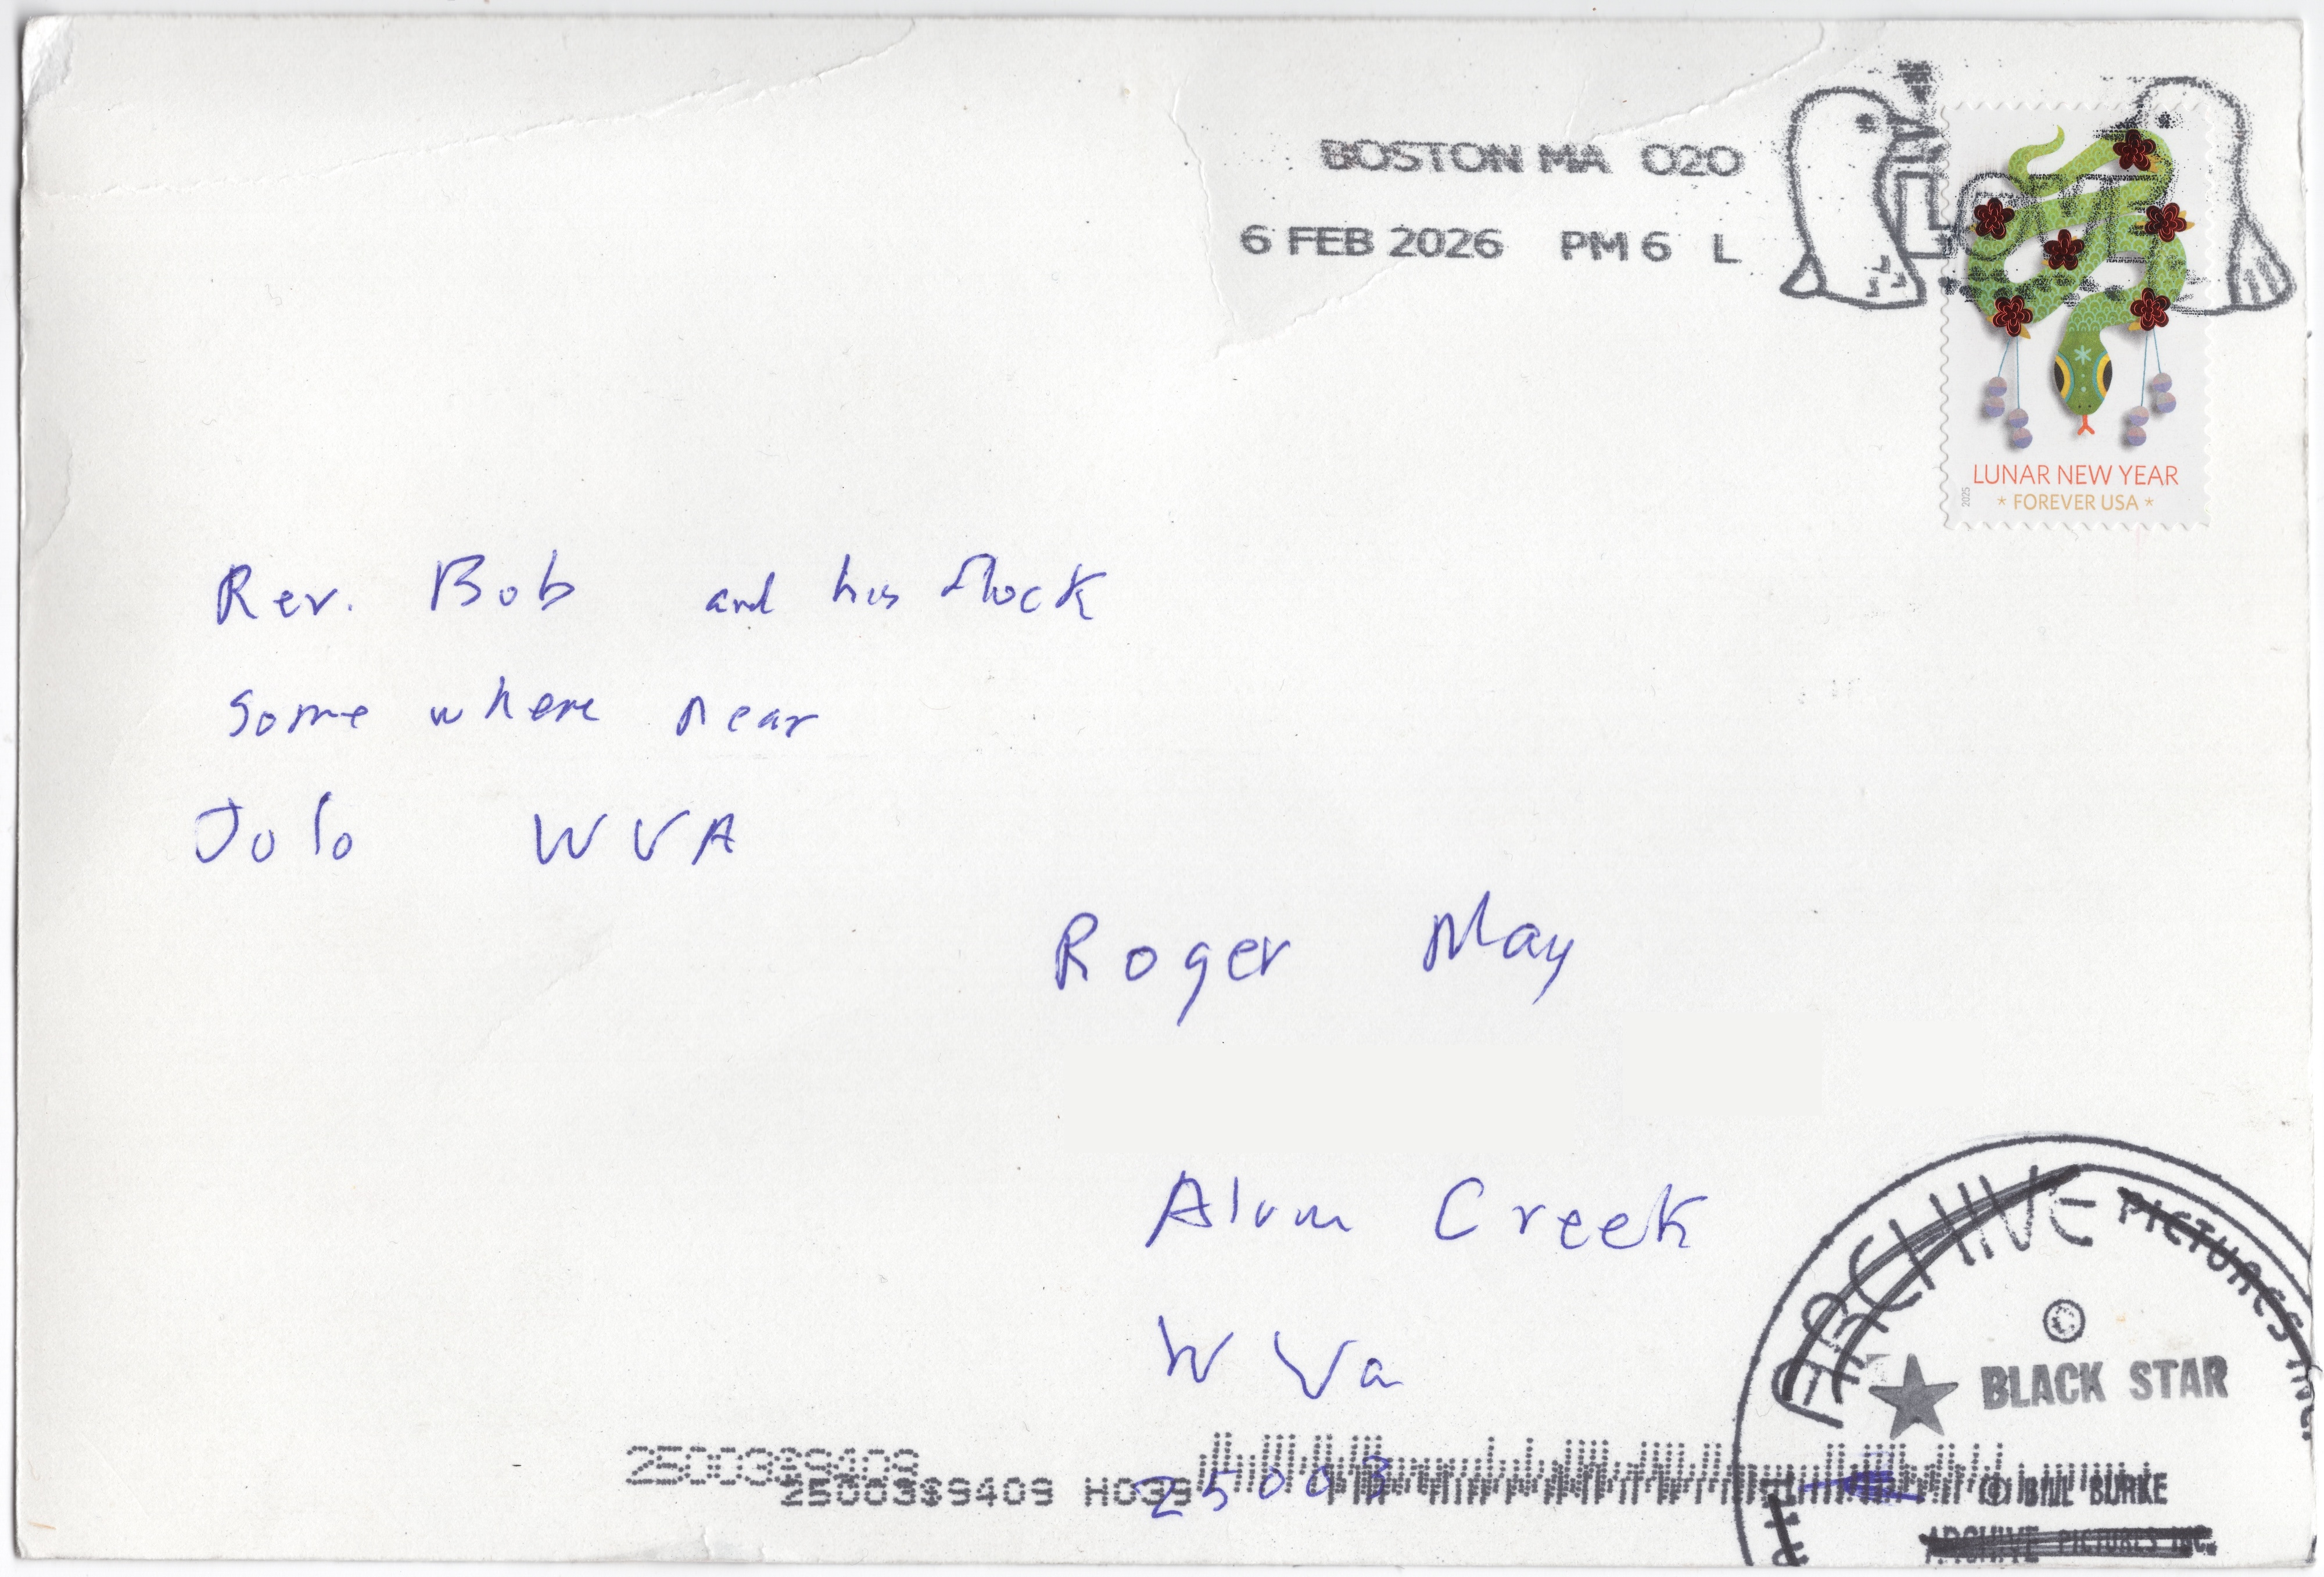 BOSTON MA 020
6 FEB 2026 PM 6 L
LUNAR NEW YEAR
* FOREVER USA *
2025
Rev. Bob and his flock
some where near
Jolo WVA
Roger May
Alum Creek
W Va
25003
25003$9409
25003$9409 H039
ARCHIVE PICTURES INC.
©
BLACK STAR
© BILL BURKE
ARCHIVE PICTURES INC.